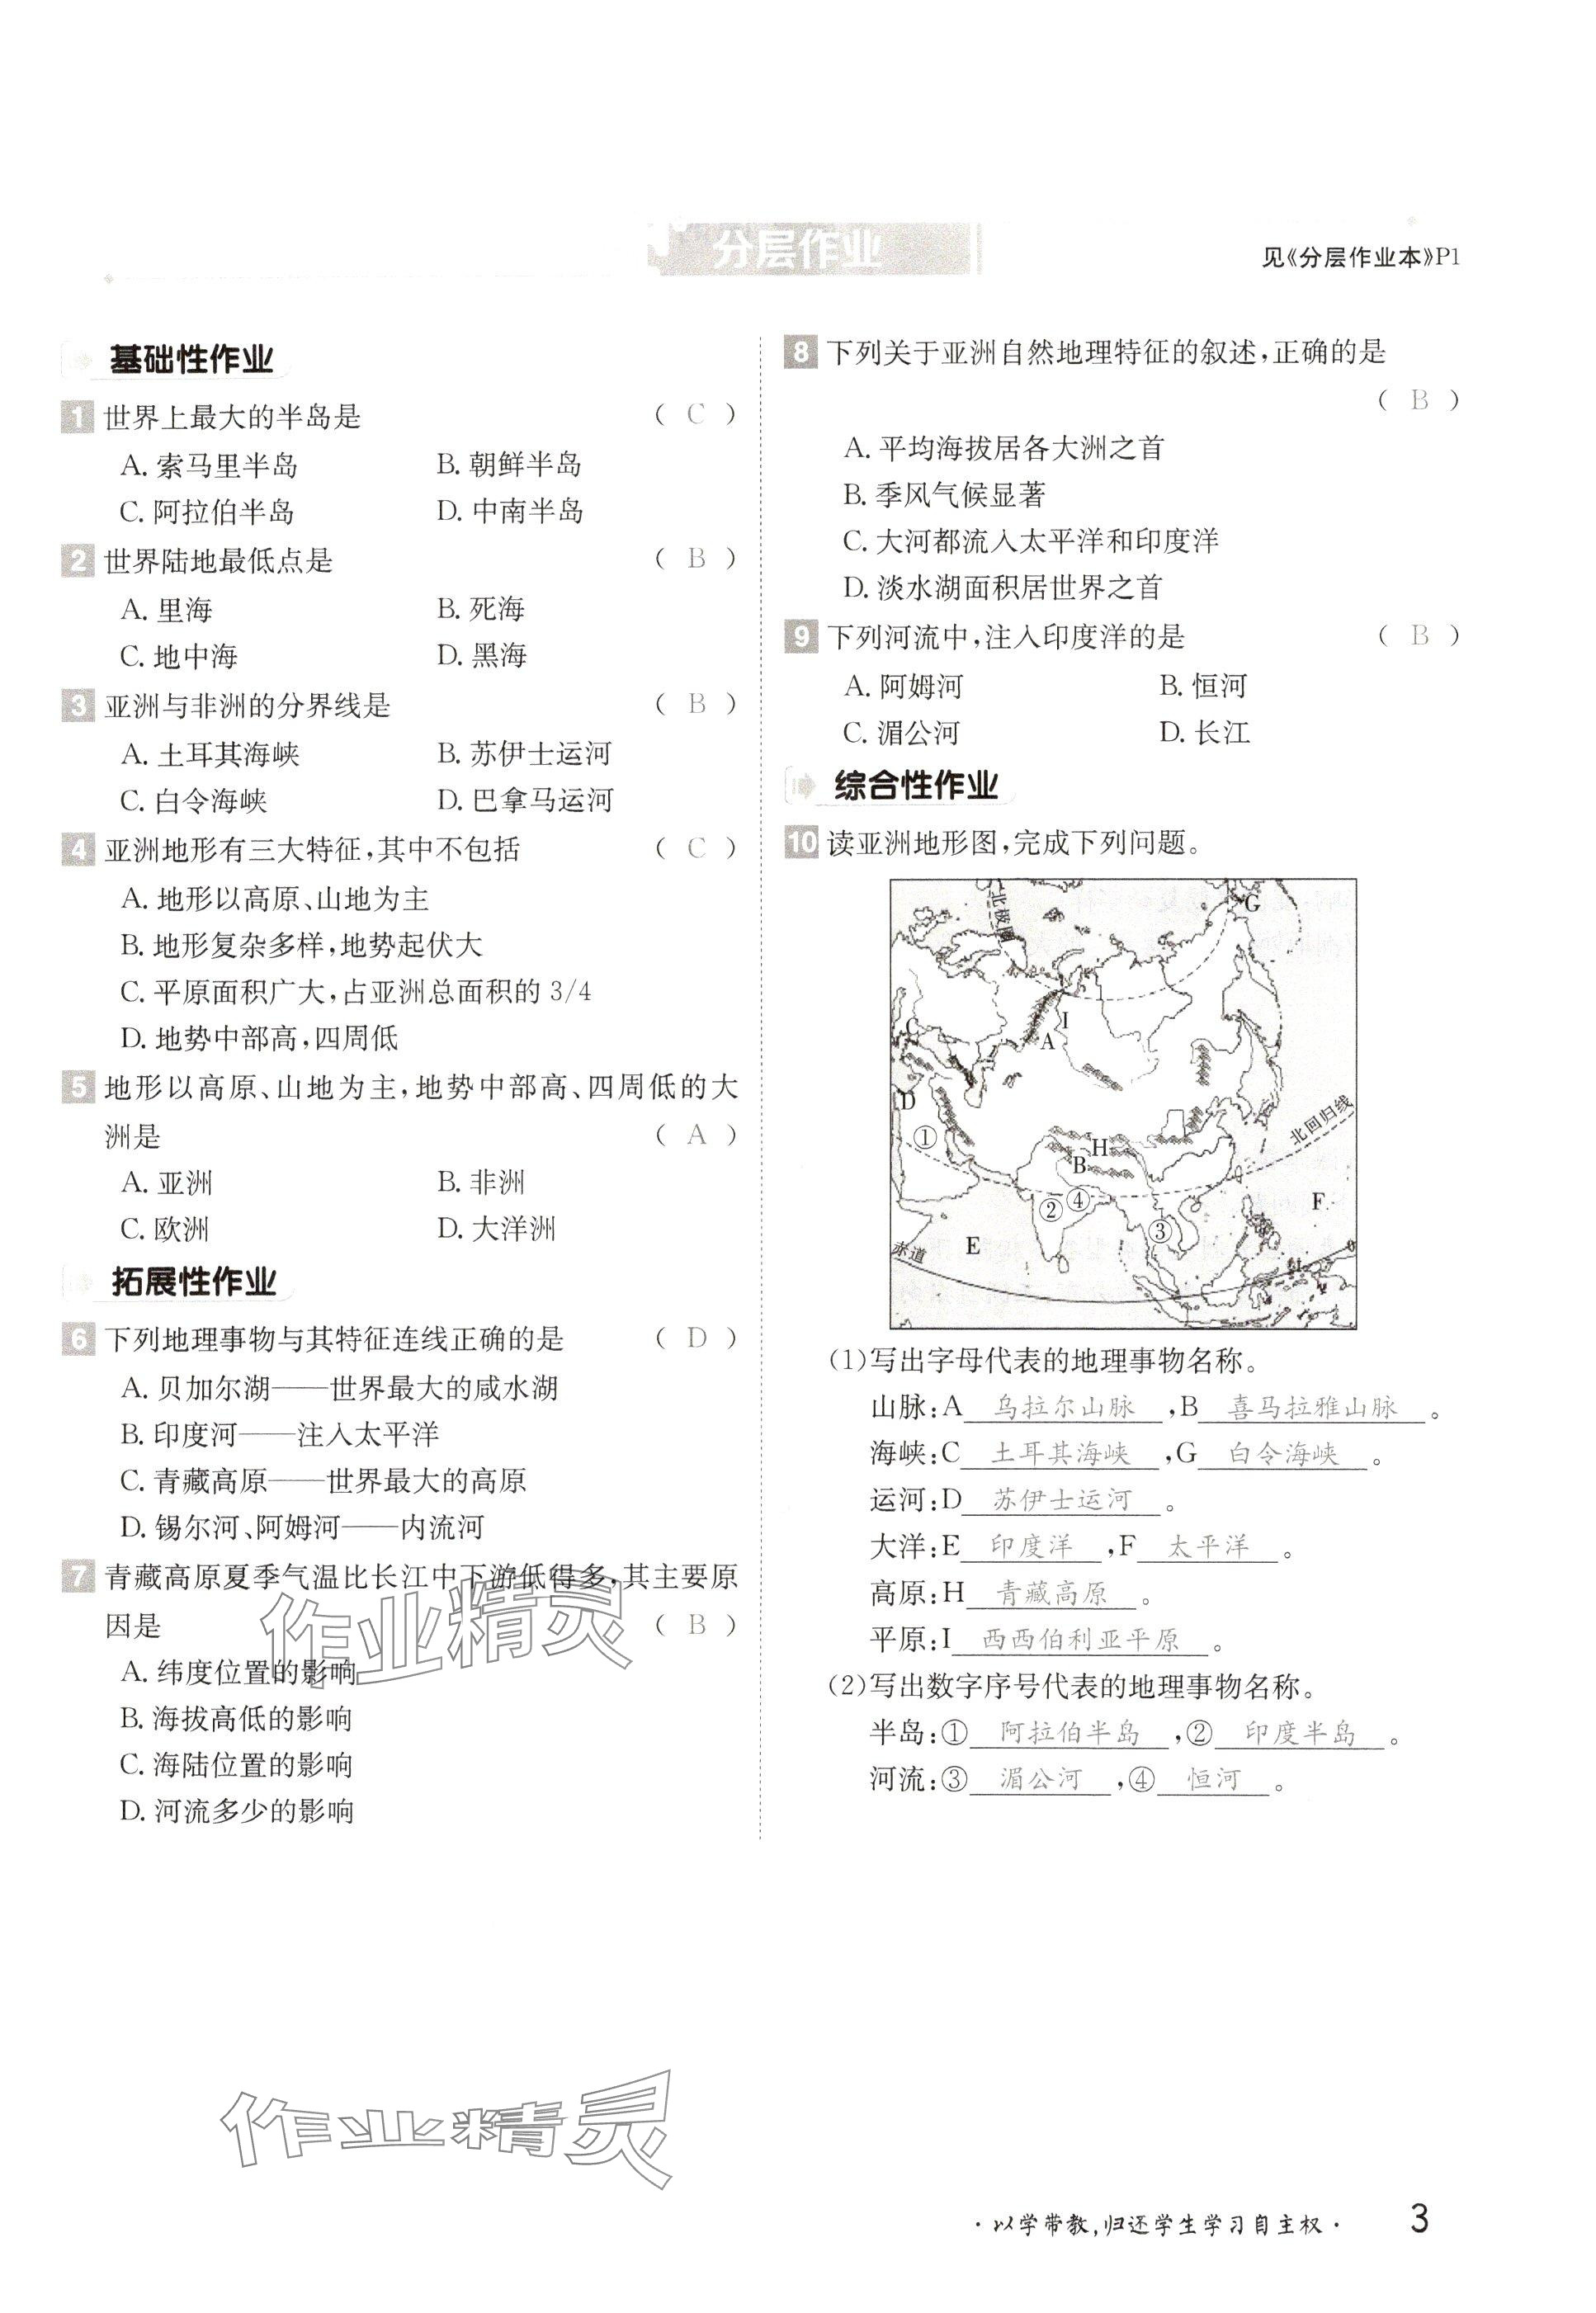 分层作业
见《分层作业本》P1
基础性作业
1 世界上最大的半岛是 （ C ）
A. 索马里半岛 B. 朝鲜半岛
C. 阿拉伯半岛 D. 中南半岛
2 世界陆地最低点是 （ B ）
A. 里海 B. 死海
C. 地中海 D. 黑海
3 亚洲与非洲的分界线是 （ B ）
A. 土耳其海峡 B. 苏伊士运河
C. 白令海峡 D. 巴拿马运河
4 亚洲地形有三大特征,其中不包括 （ C ）
A. 地形以高原、山地为主
B. 地形复杂多样,地势起伏大
C. 平原面积广大,占亚洲总面积的 3/4
D. 地势中部高,四周低
5 地形以高原、山地为主,地势中部高、四周低的大
洲是 （ A ）
A. 亚洲 B. 非洲
C. 欧洲 D. 大洋洲
拓展性作业
6 下列地理事物与其特征连线正确的是 （ D ）
A. 贝加尔湖——世界最大的咸水湖
B. 印度河——注入太平洋
C. 青藏高原——世界最大的高原
D. 锡尔河、阿姆河——内流河
7 青藏高原夏季气温比长江中下游低得多,其主要原
因是 （ B ）
A. 纬度位置的影响
B. 海拔高低的影响
C. 海陆位置的影响
D. 河流多少的影响
8 下列关于亚洲自然地理特征的叙述,正确的是
（ B ）
A. 平均海拔居各大洲之首
B. 季风气候显著
C. 大河都流入太平洋和印度洋
D. 淡水湖面积居世界之首
9 下列河流中,注入印度洋的是 （ B ）
A. 阿姆河 B. 恒河
C. 湄公河 D. 长江
综合性作业
10 读亚洲地形图,完成下列问题。
北极圈
G
C
I
A
D
①
H
B
北回归线
②
④
③
F
E
赤道
0
(1)写出字母代表的地理事物名称。
山脉:A 乌拉尔山脉 ,B 喜马拉雅山脉 。
海峡:C 土耳其海峡 ,G 白令海峡 。
运河:D 苏伊士运河 。
大洋:E 印度洋 ,F 太平洋 。
高原:H 青藏高原 。
平原:I 西西伯利亚平原 。
(2)写出数字序号代表的地理事物名称。
半岛:① 阿拉伯半岛 ,② 印度半岛 。
河流:③ 湄公河 ,④ 恒河 。
作业精灵
作业精灵
· 以学带教,归还学生学习自主权 ·
3